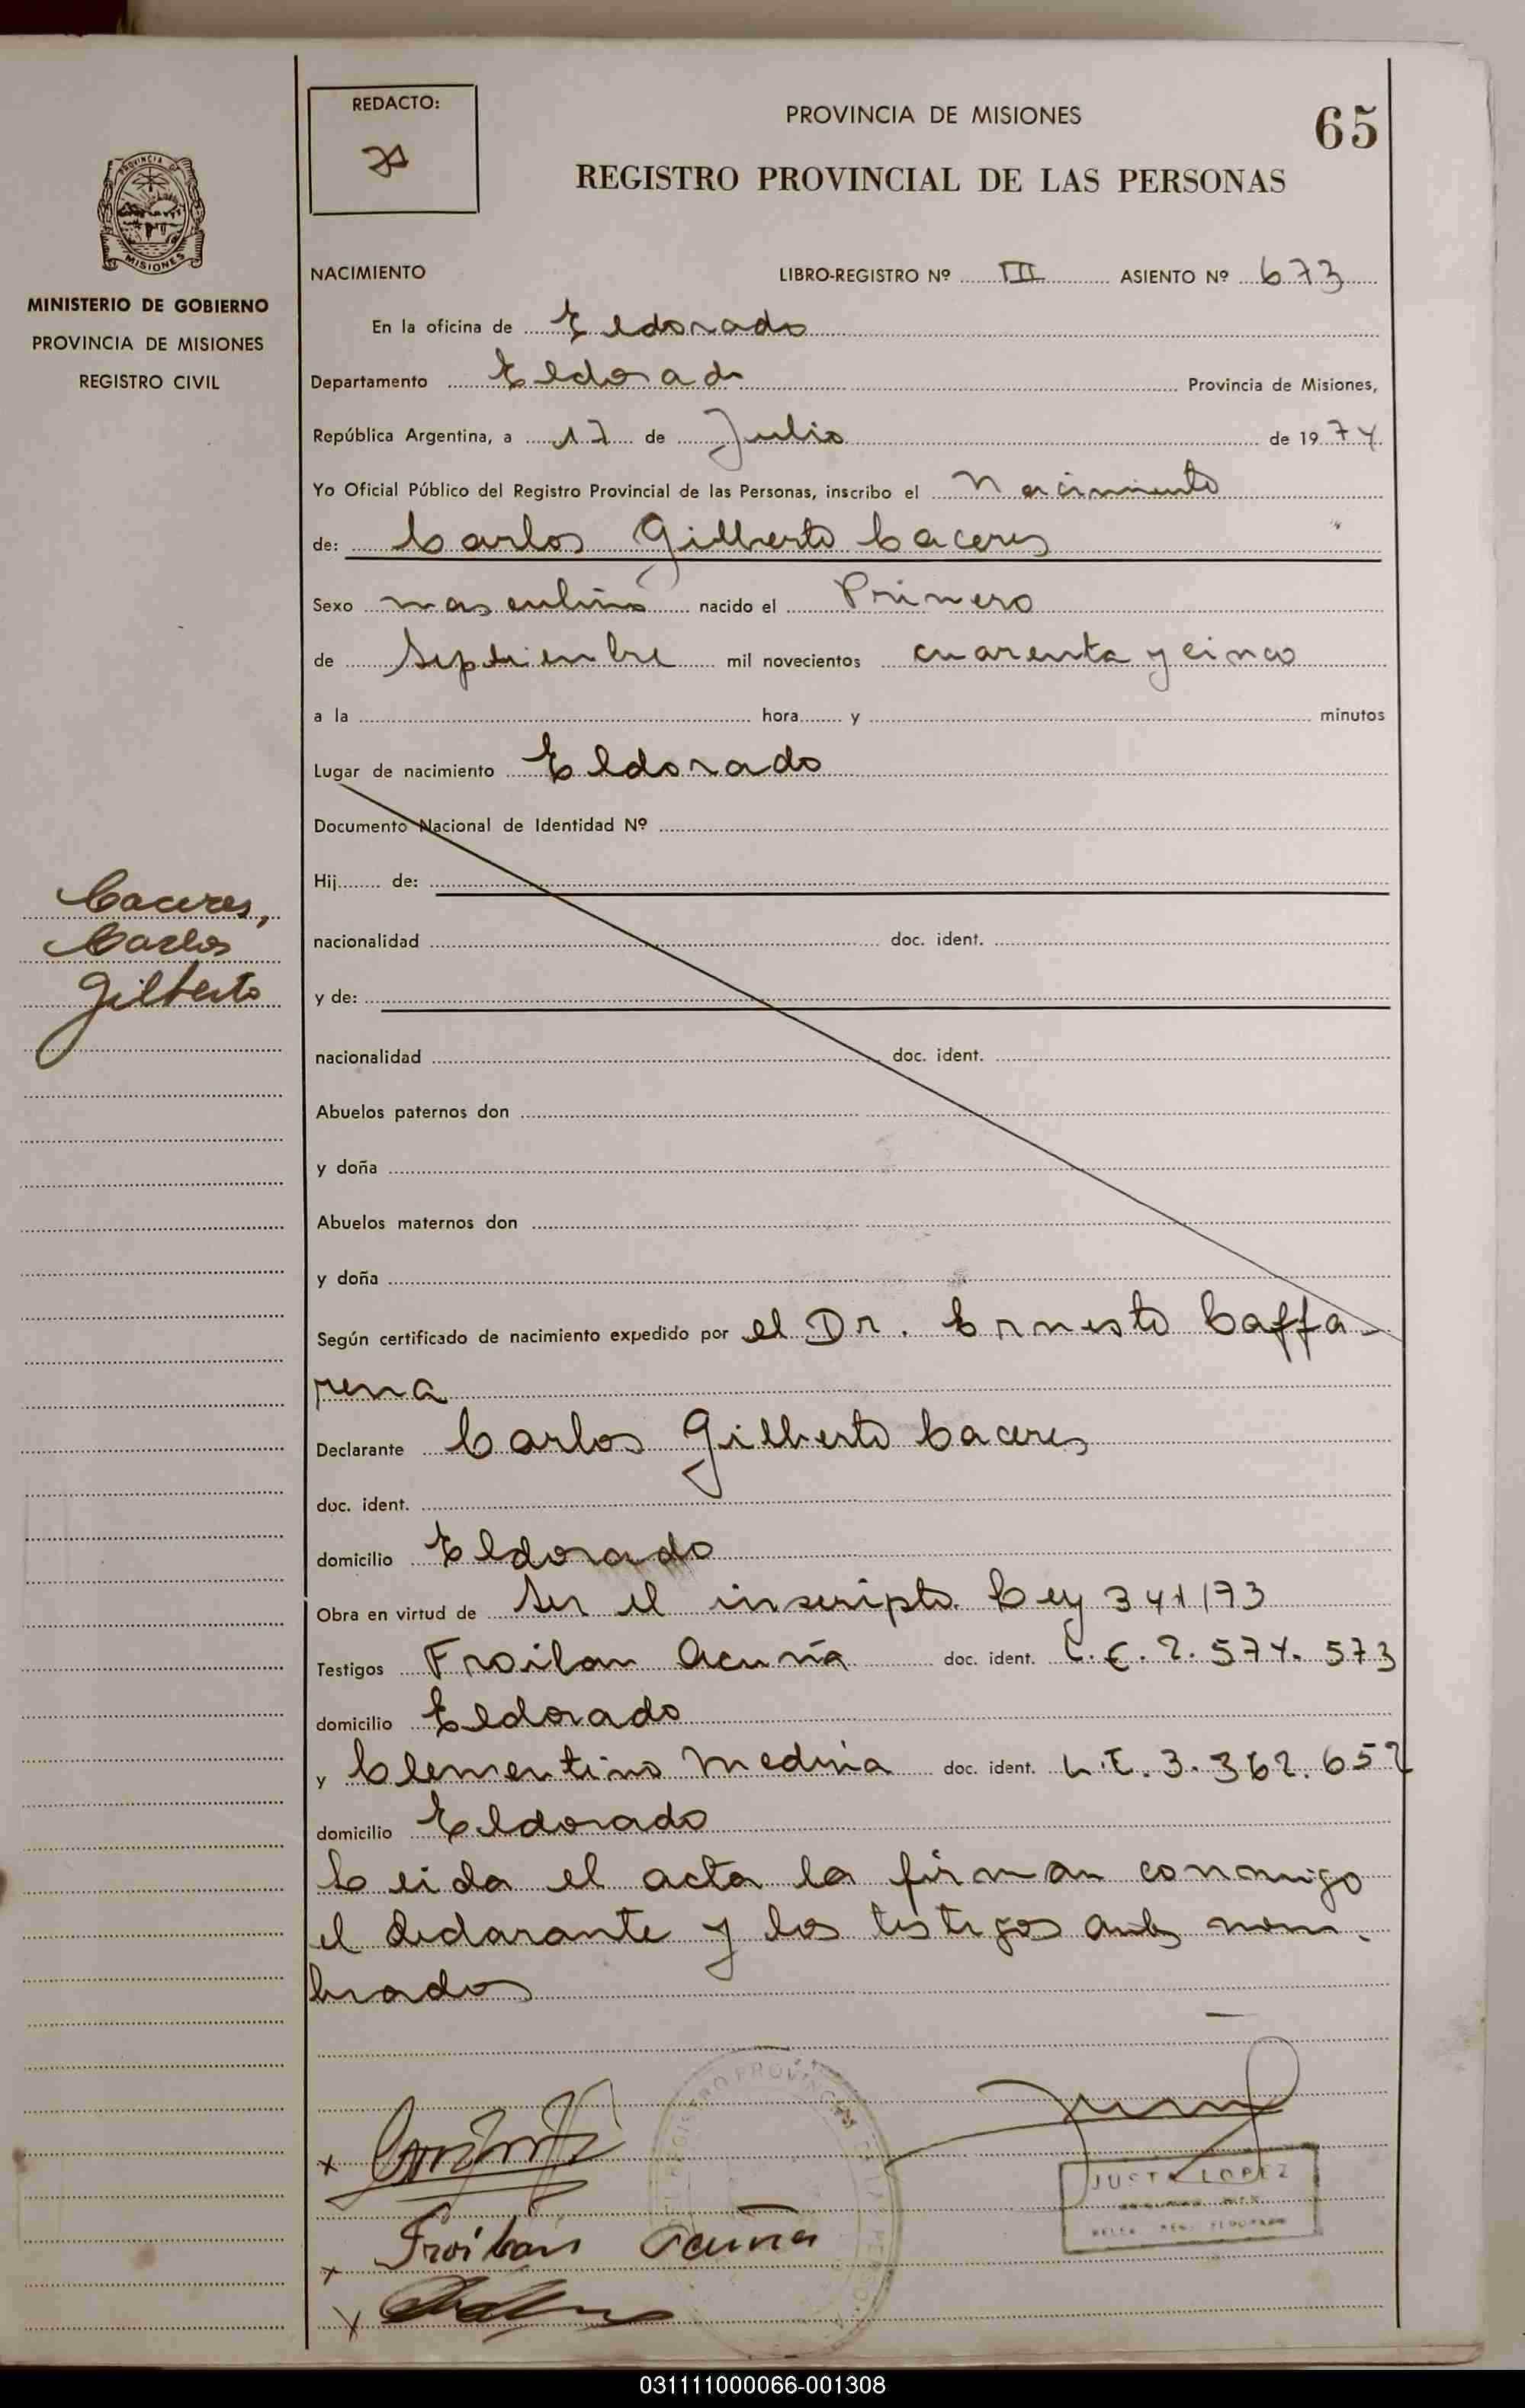 65
REDACTO:
PROVINCIA DE MISIONES
REGISTRO PROVINCIAL DE LAS PERSONAS
PROVINCIA DE
MISIONES
MINISTERIO DE GOBIERNO
PROVINCIA DE MISIONES
REGISTRO CIVIL
Caceres,
Carlos
Gilberto
NACIMIENTO LIBRO-REGISTRO Nº III ASIENTO Nº 673
En la oficina de Eldorado
Departamento Eldorado Provincia de Misiones,
República Argentina, a 17 de Julio de 1974
Yo Oficial Público del Registro Provincial de las Personas, inscribo el Nacimiento
de: Carlos Gilberto Caceres
Sexo masculino nacido el Primero
de Septiembre mil novecientos cuarenta y cinco
a la hora y minutos
Lugar de nacimiento Eldorado
Documento Nacional de Identidad Nº
Hij de:
nacionalidad doc. ident.
y de:
nacionalidad doc. ident.
Abuelos paternos don
y doña
Abuelos maternos don
y doña
Según certificado de nacimiento expedido por el Dr. Ernesto Caffa-
rena
Declarante Carlos Gilberto Caceres
doc. ident.
domicilio Eldorado
Obra en virtud de Ser el inscripto. Ley 341/73
Testigos Froilan Acuña doc. ident. L.E. 2.574.573
domicilio Eldorado
y Clementino Medina doc. ident. L.E. 3.362.652
domicilio Eldorado
Leida el acta la firman conmigo
el declarante y los testigos antes nom-
brados
x
x Froilan Acuña
x
REGISTRO PROVINCIAL DE LAS PERSONAS
JUSTA LOPEZ
031111000066-001308